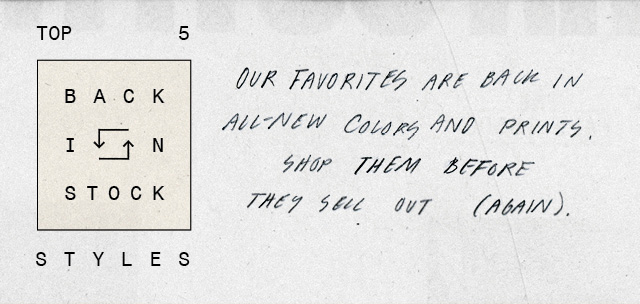 TOP 5
BACK
IN
STOCK
STYLES
OUR FAVORITES ARE BACK IN
ALL-NEW COLORS AND PRINTS.
SHOP THEM BEFORE
THEY SELL OUT (AGAIN).